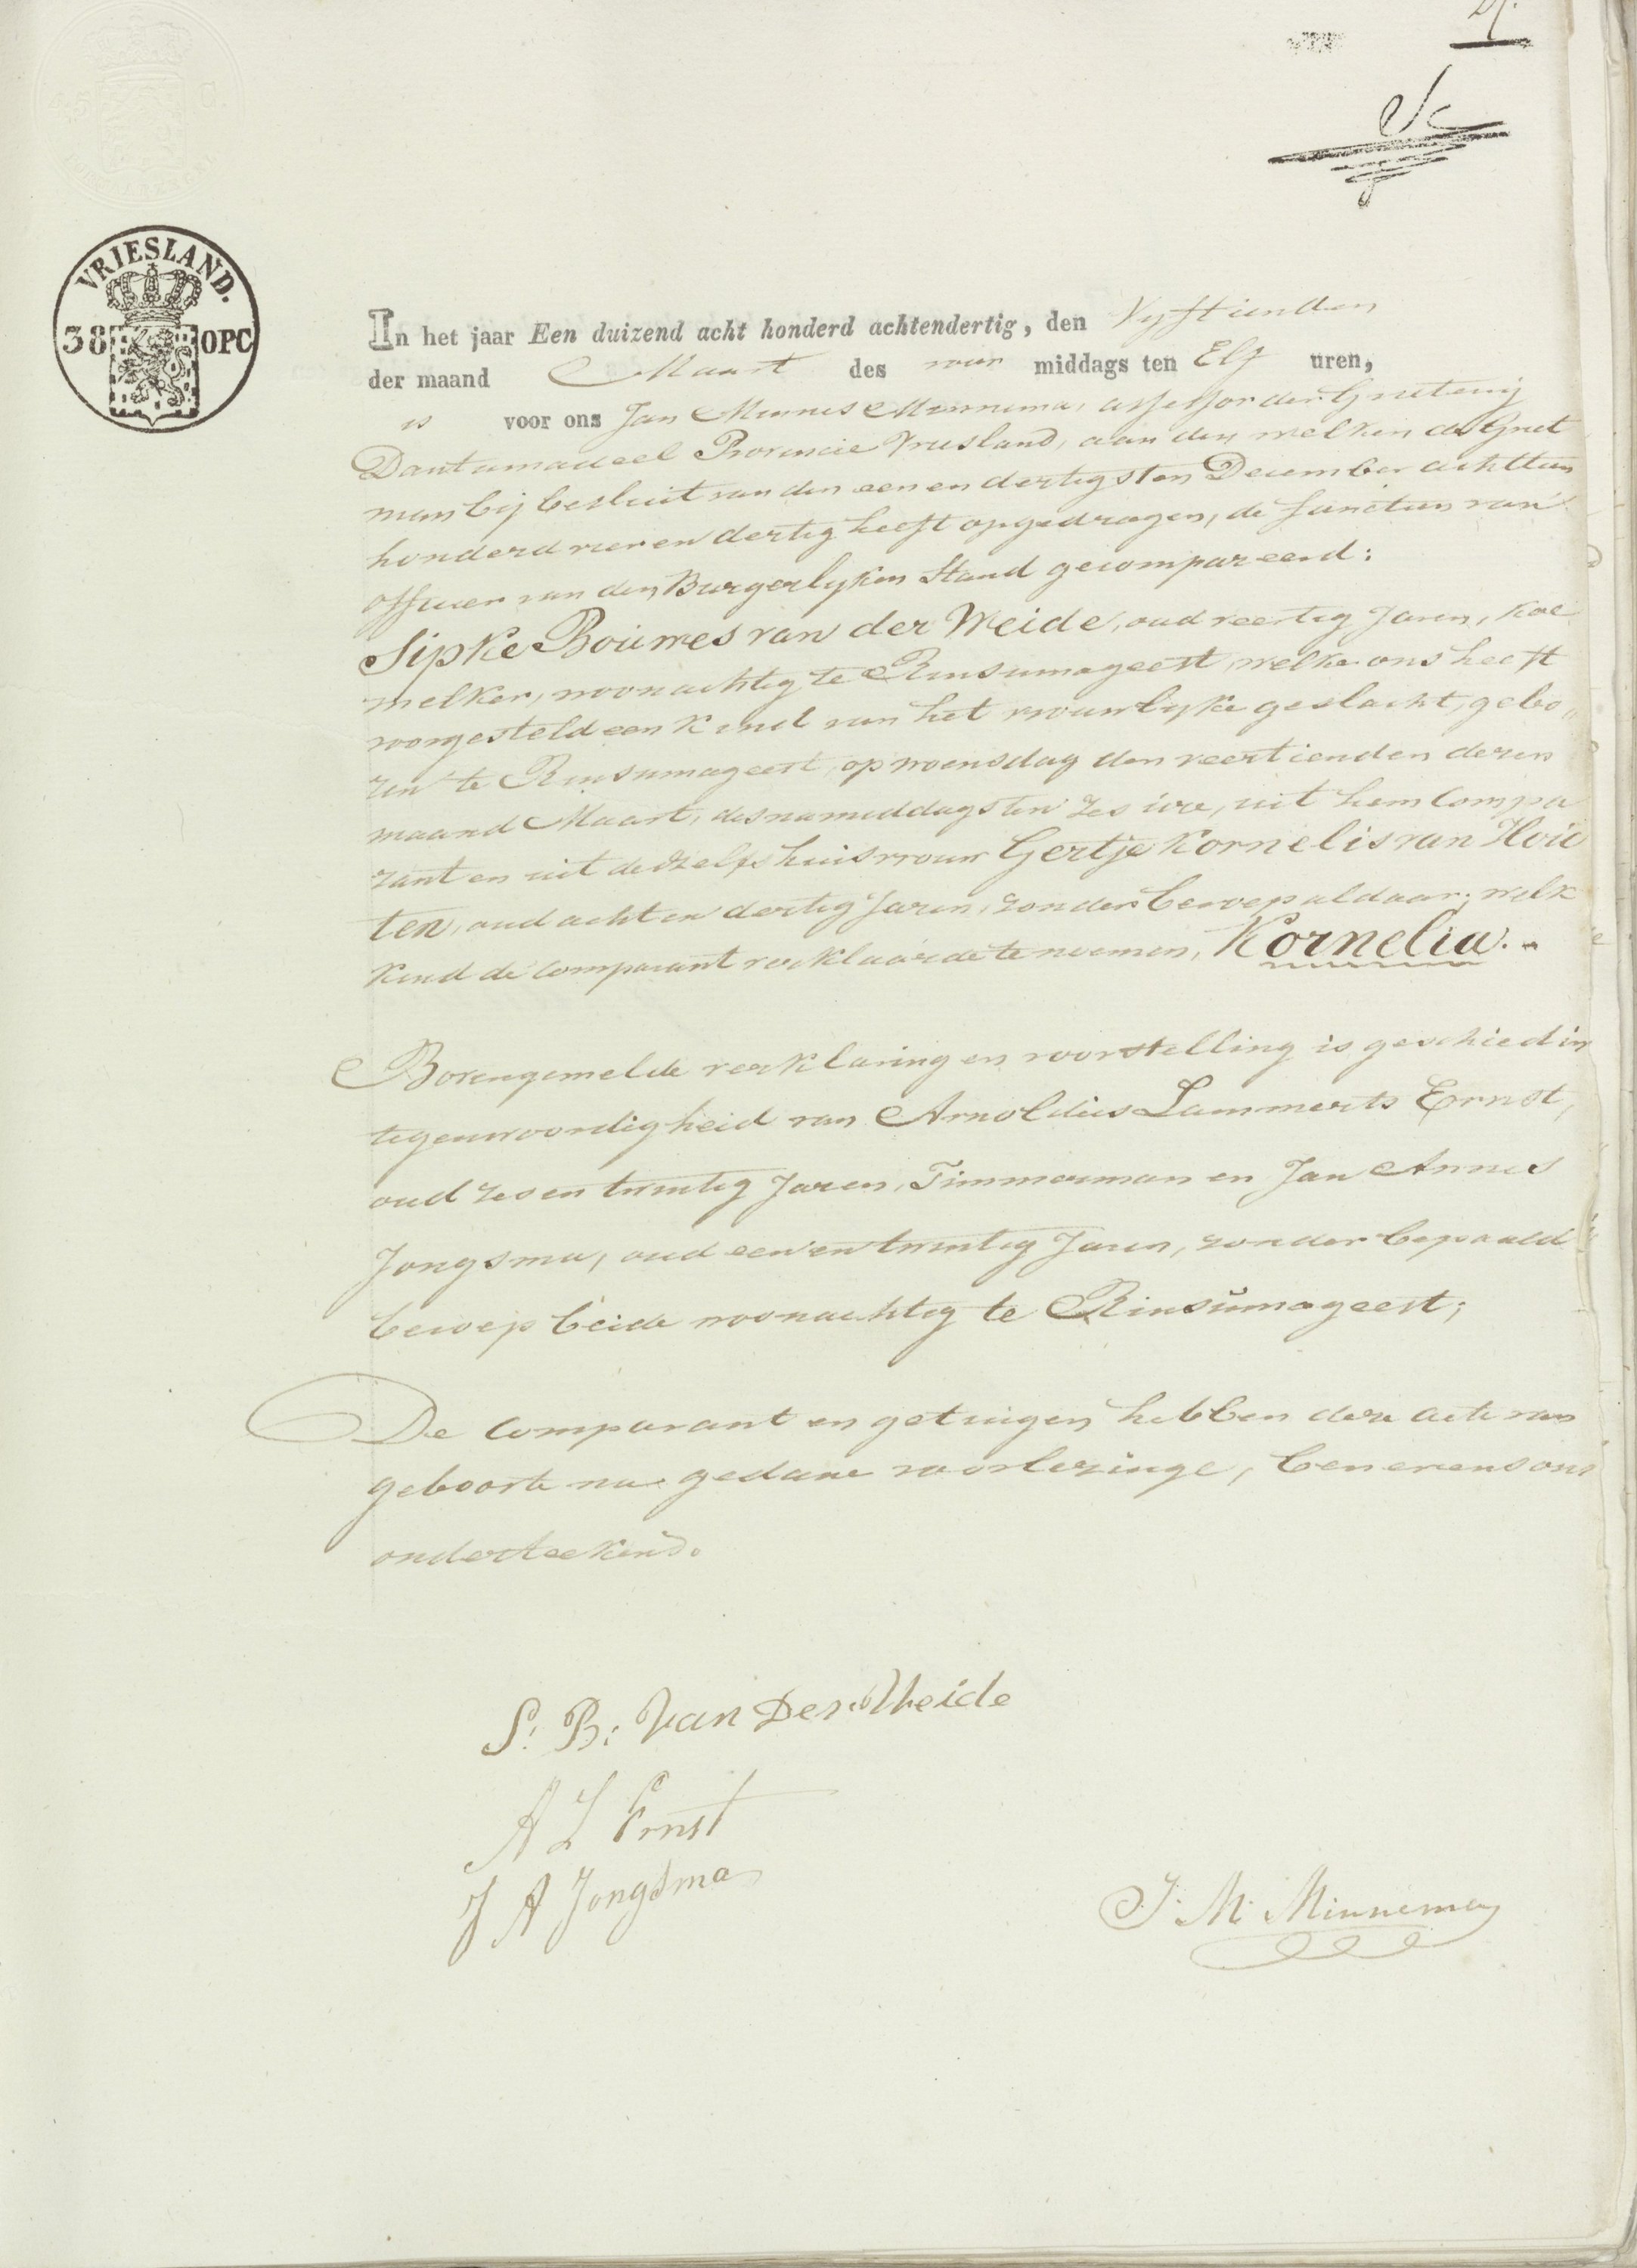 VRIESLAND.
38 OPC
In het jaar Een duizend acht honderd achtendertig, den Vyftienden
der maand Maart des voor middags ten Elf uren,
is voor ons Jan Minnes Minnema, assessor der Grietenij
Dantumadeel Provincie Vriesland, aan den welken de Griet
man bij besluit van den een en dertigsten December achttien
honderd vier en dertig heeft opgedragen, de functien van
officier van den Burgerlyken Stand gecompareerd:
Sipke Bouwes van der Weide, oud veertig Jaren, koe
melker, woonachtig te Rinsumageest, welke ons heeft
voorgesteld een kind van het vrouwlyke geslacht, gebo„
ren te Rinsumageest, op woensdag den veertienden dezer
maand Maart, des namiddags ten zes ure, uit hem Compa
rant en uit deszelfs huisvrouw Gertje Kornelis van Hou
ten, oud acht en dertig Jaren, zonder beroep aldaar; welk
kind de comparant verklaarde te noemen, Kornelia.
Bovengemelde verklaring en voorstelling is geschied in
tegenwoordigheid van Arnoldus Lammerts Ernst,
oud zes en twintig Jaren, Timmerman en Jan Annes
Jongsma, oud een en twintig Jaren, zonder bepaald
beroep beide woonachtig te Rinsumageest;
De Comparant en getuigen hebben deze acte van
geboorte na gedane voorlezinge, benevens ons
onderteekend.
S: B: Van Der Weide
A L Ernst
J A Jongsma
J. M. Minnema